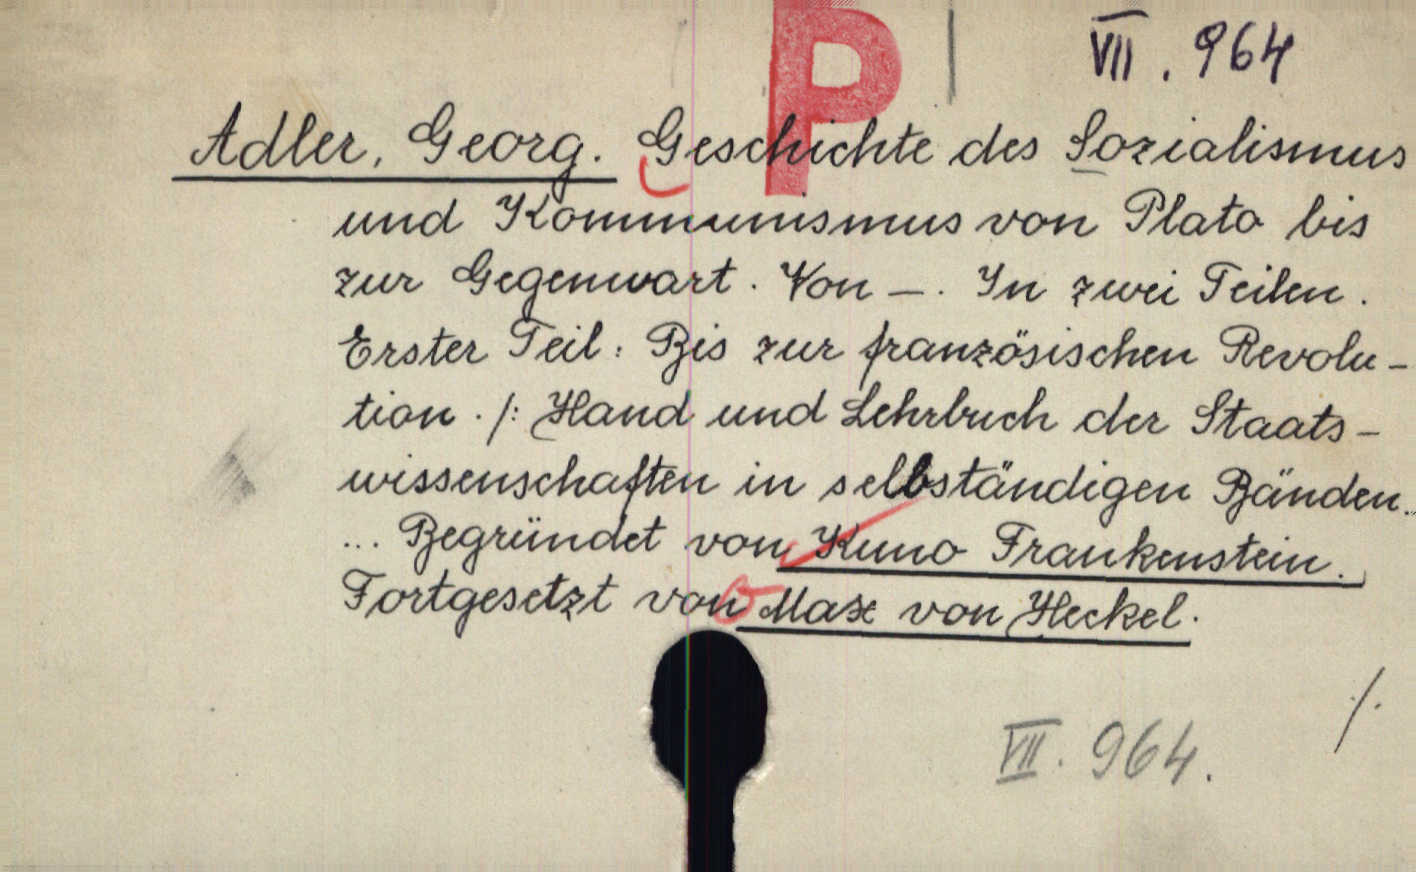 P
VII. 964
Adler, Georg. Geschichte des Sozialismus
und Kommunismus von Plato bis
zur Gegenwart. Von —. In zwei Teilen.
Erster Teil: Bis zur französischen Revolu-
tion. /: Hand und Lehrbuch der Staats-
wissenschaften in selbständigen Bänden..
... Begründet von Kuno Frankenstein.
Fortgesetzt von Max von Heckel.
/.
VII. 964.